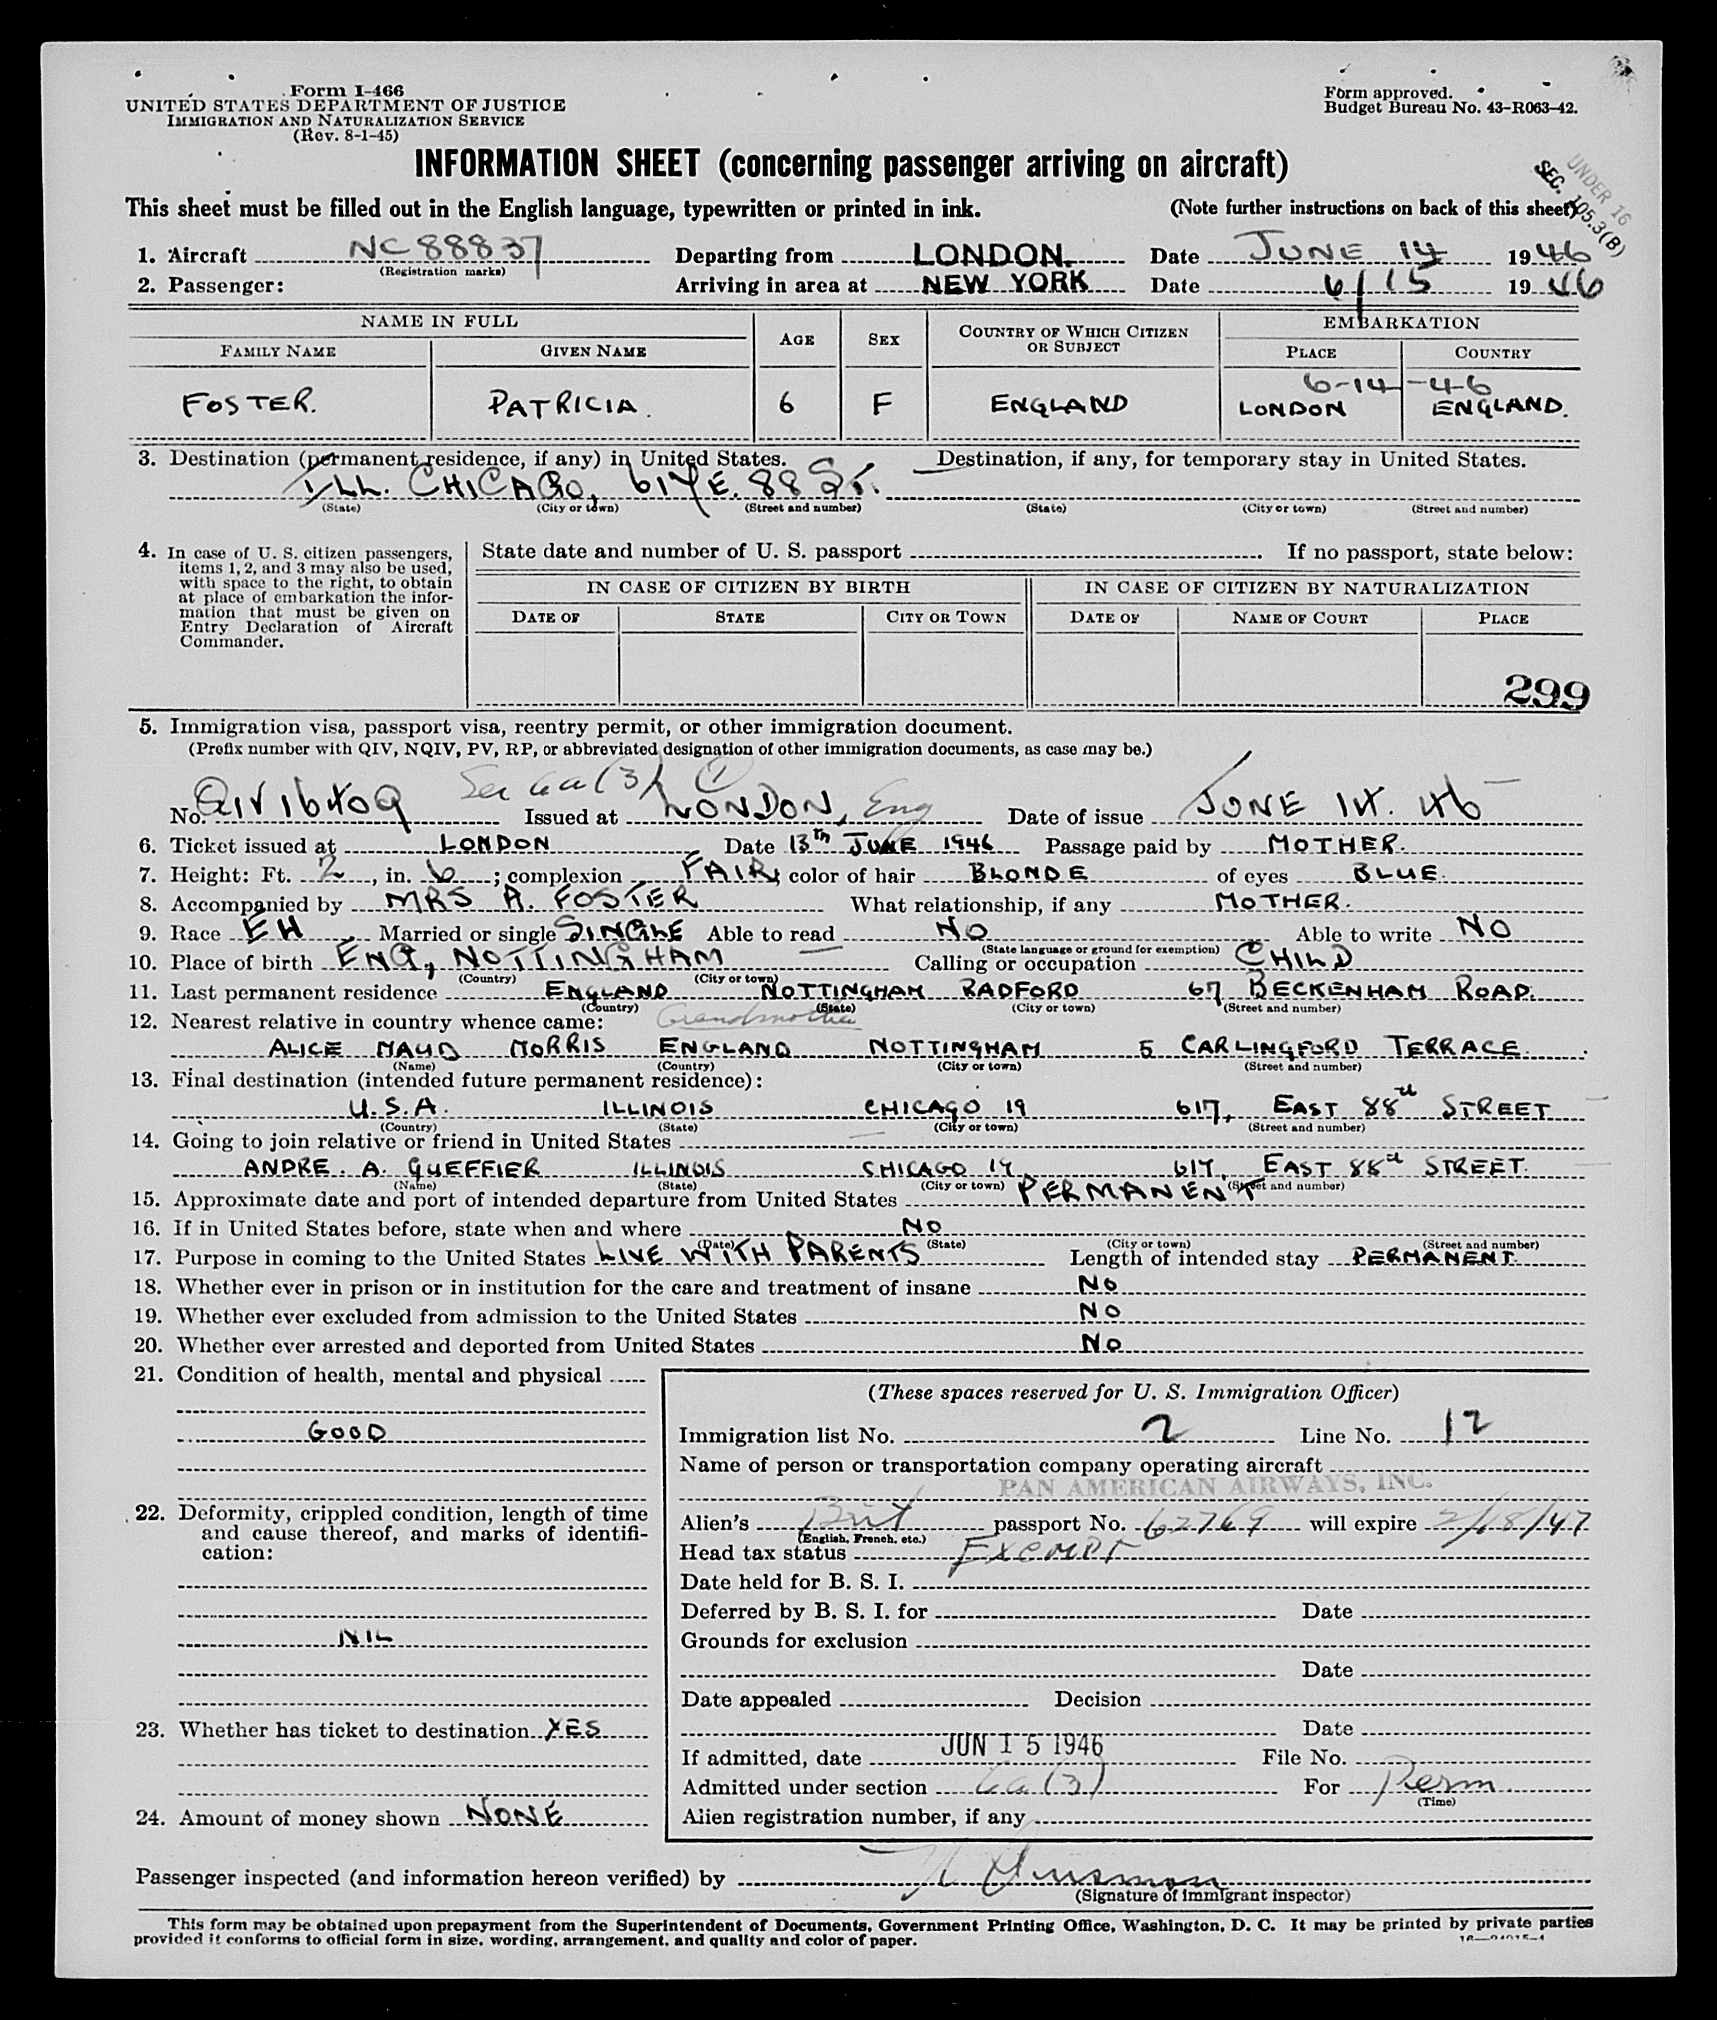 Form I-466
UNITED STATES DEPARTMENT OF JUSTICE
IMMIGRATION AND NATURALIZATION SERVICE
(Rev. 8-1-45)
Form approved.
Budget Bureau No. 43-R063-42.
INFORMATION SHEET (concerning passenger arriving on aircraft)
UNDER 16
SEC. 105.3(B)
This sheet must be filled out in the English language, typewritten or printed in ink. (Note further instructions on back of this sheet)
1. Aircraft NC 88837 Departing from LONDON. Date JUNE 14 1946
(Registration marks)
2. Passenger: Arriving in area at NEW YORK Date 6/15 1946
NAME IN FULL AGE SEX COUNTRY OF WHICH CITIZEN OR SUBJECT EMBARKATION
FAMILY NAME GIVEN NAME PLACE COUNTRY
6-14-46
FOSTER. PATRICIA. 6 F ENGLAND LONDON ENGLAND.
3. Destination (permanent residence, if any) in United States. Destination, if any, for temporary stay in United States.
ILL. CHICAGO, 617 E. 88 ST.
(State) (City or town) (Street and number) (State) (City or town) (Street and number)
4. In case of U. S. citizen passengers, items 1, 2, and 3 may also be used, with space to the right, to obtain at place of embarkation the information that must be given on Entry Declaration of Aircraft Commander.
State date and number of U. S. passport If no passport, state below:
IN CASE OF CITIZEN BY BIRTH IN CASE OF CITIZEN BY NATURALIZATION
DATE OF STATE CITY OR TOWN DATE OF NAME OF COURT PLACE
299
5. Immigration visa, passport visa, reentry permit, or other immigration document.
(Prefix number with QIV, NQIV, PV, RP, or abbreviated designation of other immigration documents, as case may be.)
Sec 6a(3) (1)
No. QIV 16409 Issued at LONDON, Eng Date of issue JUNE 14. 46
6. Ticket issued at LONDON Date 13th JUNE 1946 Passage paid by MOTHER.
7. Height: Ft. 2, in. 6; complexion FAIR; color of hair BLONDE of eyes BLUE.
8. Accompanied by MRS A. FOSTER What relationship, if any MOTHER.
9. Race EH Married or single SINGLE Able to read NO Able to write NO
(State language or ground for exemption)
10. Place of birth ENG, NOTTINGHAM Calling or occupation CHILD
(Country) (City or town)
11. Last permanent residence ENGLAND NOTTINGHAM RADFORD 67 BECKENHAM ROAD.
(Country) (State) (City or town) (Street and number)
12. Nearest relative in country whence came: Grandmother
ALICE MAUD MORRIS ENGLAND NOTTINGHAM 5 CARLINGFORD TERRACE.
(Name) (Country) (City or town) (Street and number)
13. Final destination (intended future permanent residence):
U.S.A. ILLINOIS CHICAGO 19 617, EAST 88th STREET
(Country) (State) (City or town) (Street and number)
14. Going to join relative or friend in United States
ANDRE. A. GUEFFIER ILLINOIS CHICAGO 19, 617, EAST 88th STREET.
(Name) (State) (City or town) (Street and number)
15. Approximate date and port of intended departure from United States PERMANENT
16. If in United States before, state when and where NO
(Date) (State) (City or town) (Street and number)
17. Purpose in coming to the United States LIVE WITH PARENTS Length of intended stay PERMANENT.
18. Whether ever in prison or in institution for the care and treatment of insane NO
19. Whether ever excluded from admission to the United States NO
20. Whether ever arrested and deported from United States NO
21. Condition of health, mental and physical
GOOD
22. Deformity, crippled condition, length of time and cause thereof, and marks of identification:
NIL
23. Whether has ticket to destination YES
24. Amount of money shown NONE
(These spaces reserved for U. S. Immigration Officer)
Immigration list No. 2 Line No. 12
Name of person or transportation company operating aircraft
PAN AMERICAN AIRWAYS, INC.
Alien's Brit passport No. 62769 will expire 2/18/47
(English, French, etc.)
Head tax status Exempt
Date held for B. S. I.
Deferred by B. S. I. for Date
Grounds for exclusion
Date
Date appealed Decision
Date
If admitted, date JUN 15 1946 File No.
Admitted under section 6a(3) For Perm
(Time)
Alien registration number, if any
Passenger inspected (and information hereon verified) by
(Signature of immigrant inspector)
This form may be obtained upon prepayment from the Superintendent of Documents, Government Printing Office, Washington, D. C. It may be printed by private parties
provided it conforms to official form in size, wording, arrangement, and quality and color of paper.